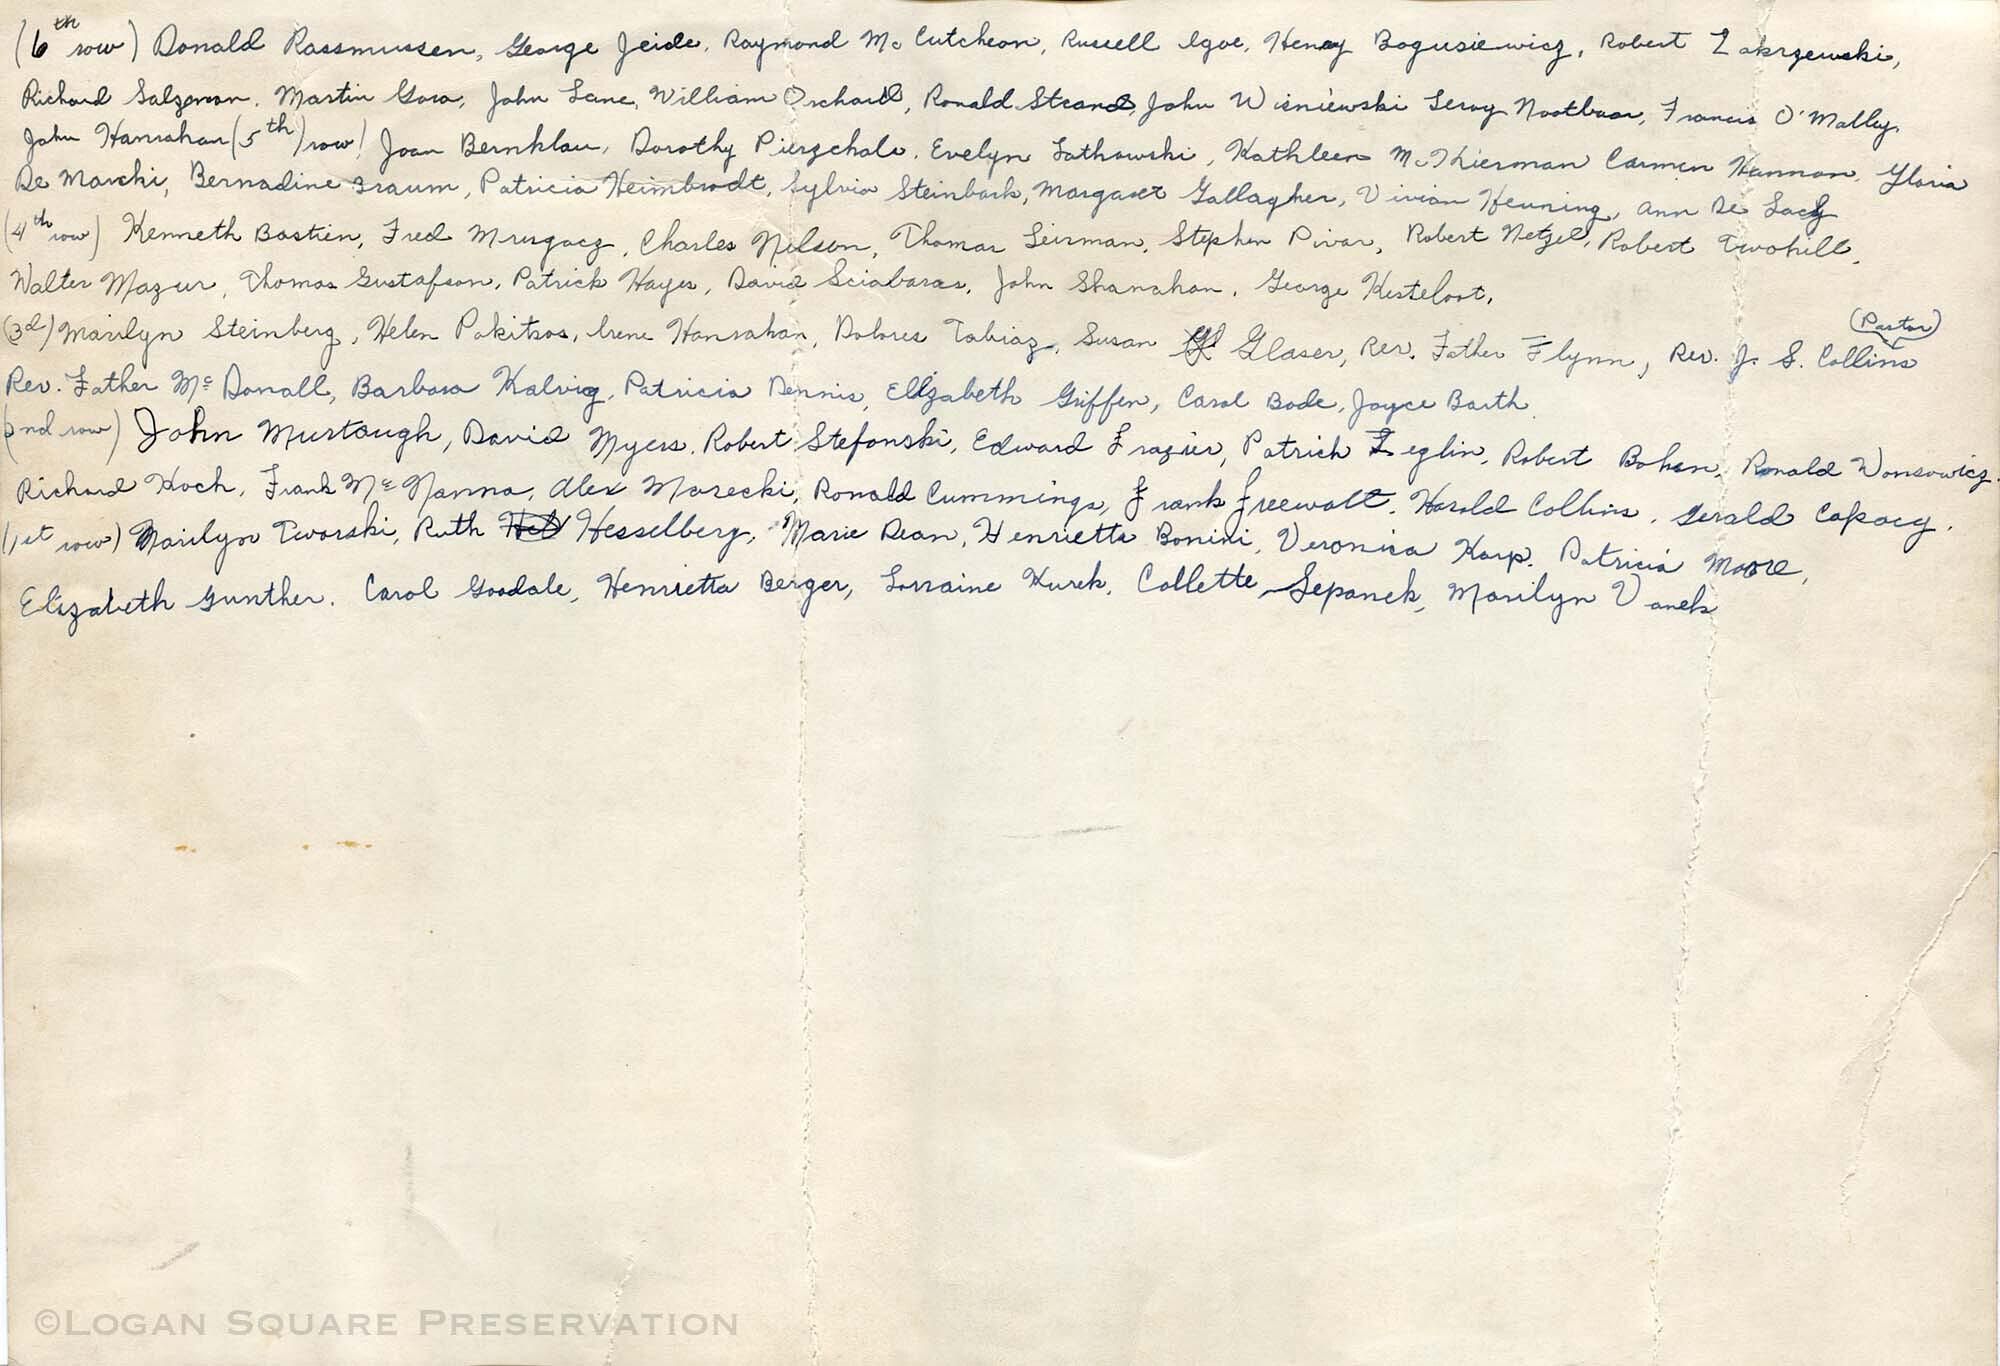 (6th row) Donald Rassmussen, George Jeide, Raymond Mc Cutcheon, Russell Igoe, Henry Bogusiewicz, Robert Zakrzewski,
Richard Salzman, Martin Gora, John Lane, William Orchard, Ronald Strand, John Wisniewski Leroy Nootbaar, Francis O'Malley,
John Hanrahan (5th) row) Joan Bernklau, Dorothy Pierzchala, Evelyn Latkowski, Kathleen Mc Kierman Carmen Hannon, Gloria
De Marchi, Bernadine Traum, Patricia Heimbrodt, Sylvia Steinbark, Margaret Gallagher, Vivian Heuning, Ann De Lacy
(4th row) Kenneth Bastien, Fred Mrugacz, Charles Nelson, Thomas Leirman, Stephen Pivar, Robert Netzel, Robert Twohill,
Walter Mazur, Thomas Gustafson, Patrick Hayes, David Sciabaras, John Shanahan, George Kesteloot,
(3d) Marilyn Steinberg, Helen Pakitsos, Irene Hanrahan, Dolores Tobiaz, Susan Glaser, Rev. Father Flynn, Rev. J. S. Collins (Pastor)
Rev. Father Mc Donall, Barbara Kalvig, Patricia Dennis, Elizabeth Griffen, Carol Bode, Joyce Barth
(2nd row) John Murtaugh, David Myers, Robert Stefanski, Edward Frazier, Patrick Zeglin, Robert Bohan, Ronald Wonsowicz,
Richard Koch, Frank Mc Nanna, Alex Marecki, Ronald Cummings, Frank Freewalt, Harold Collins, Gerald Capacy.
(1st row) Marilyn Tworski, Ruth Hesselberg, Marie Dean, Henrietta Bonini, Veronica Karp, Patricia Moore,
Elizabeth Gunther, Carol Goodale, Henrietta Berger, Lorraine Kurek, Collette Sepanek, Marilyn Vanek
©LOGAN SQUARE PRESERVATION